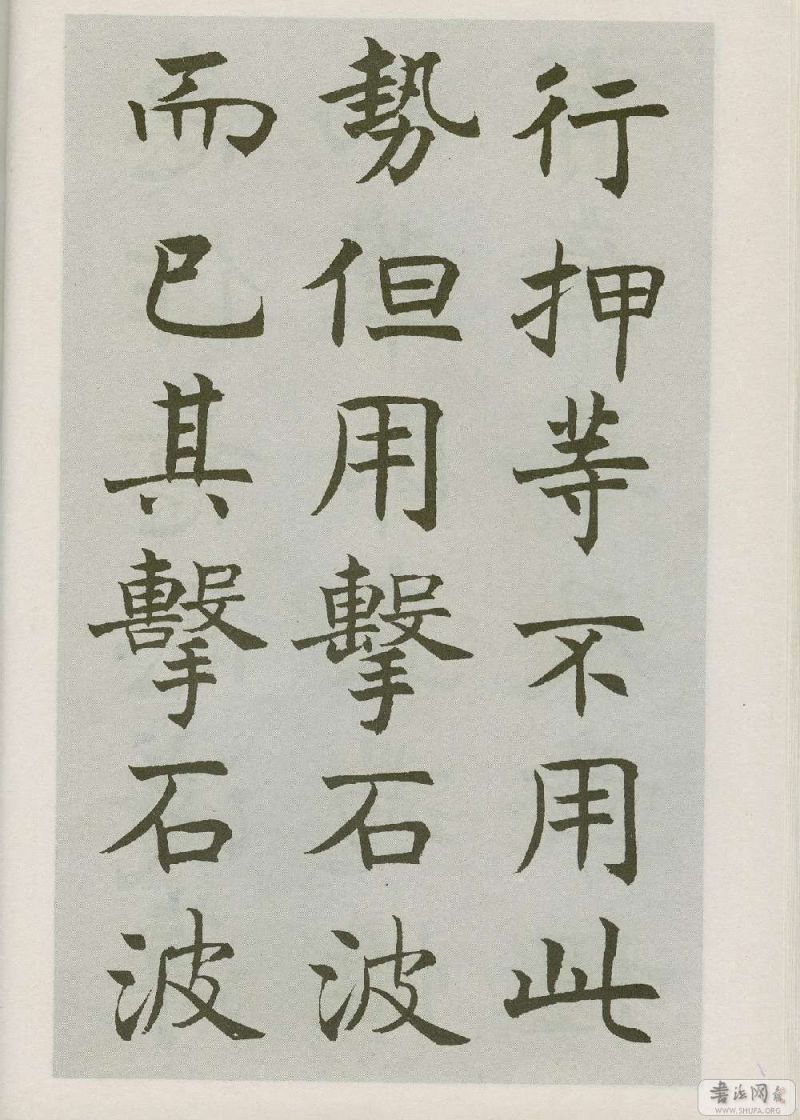 行押等不用此
勢但用擊石波
而已其擊石波
書法网
WWW.SHUFA.ORG